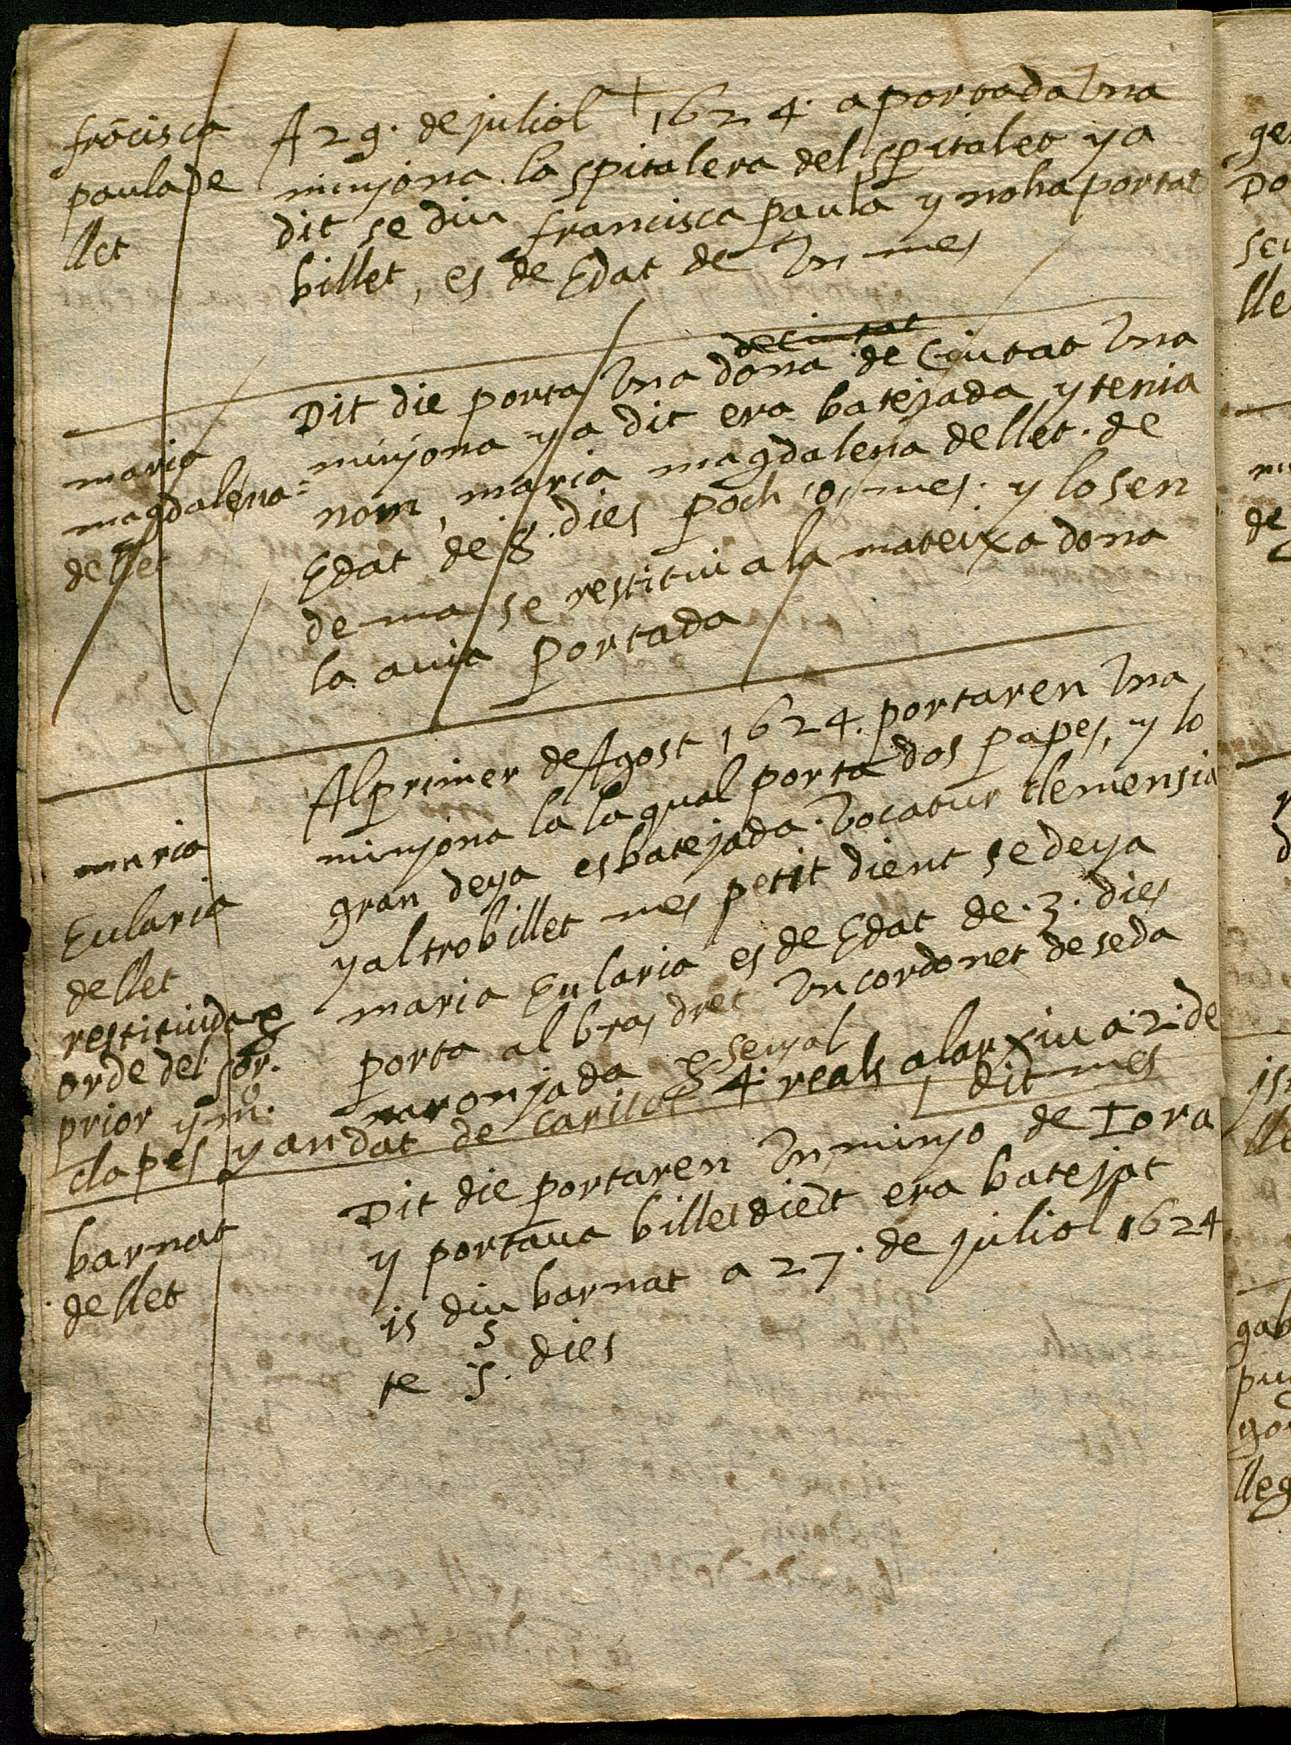 +
frãcisca
paula de
llet
A 29. de juliol 1624. aportada Vna
minyona la spitalera del spitalet y a
dit se diu francisca paula y noha portat
billet, es de Edat de Vn mes
maria
magdalena
de llet
de Ciutat
Dit die porta Vna dona de Ciutat Vna
minyona y a dit era batejada y tenia
nom, maria magdalena de llet. de
Edat de 8. dies poch o, mes. y lo sen
de ma se restitui a la mateixa dona
la auia portada
maria
Eularia
de llet
restituida ꝑ
orde del sor.
prior y mº.
clapes
Al primer de Agost 1624. portaren Vna
minyona la la qual porta dos papes, y lo
gran deya es batejada. Vocatur clemensia
y altro billet mes petit dient se deya
maria Eularia es de Edat de .3. dies
porta al bras dret Vn cordonet de seda
naronjada ꝑ senyal
y an dat de caritat 4. reals a larxiu a .2. de
dit mes
barnat
de llet
Dit die portaren Vn minyo de Iora
y portaua billet diedt era batejat
is diu barnat a 27. de juliol 1624
te 5. dies
5
ge
Do
lle
de
gab
lleg